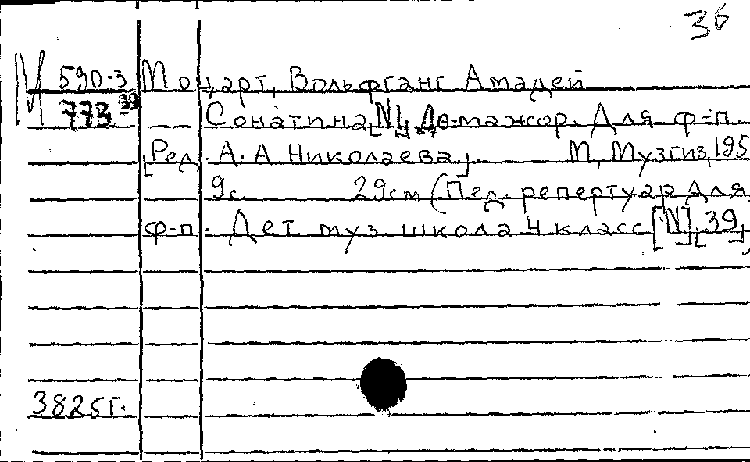 36
М 590-3 Моцарт, Вольфганг Амадей
773 39 Сонатина [N] До-мажор. Для ф-п.
[Ред. А. А Николаева]. М, Музгиз, 195
9с. 29см (Пед. репертуар для
ф-п. Дет. муз. школа 4 класс [N] 39
3825г.